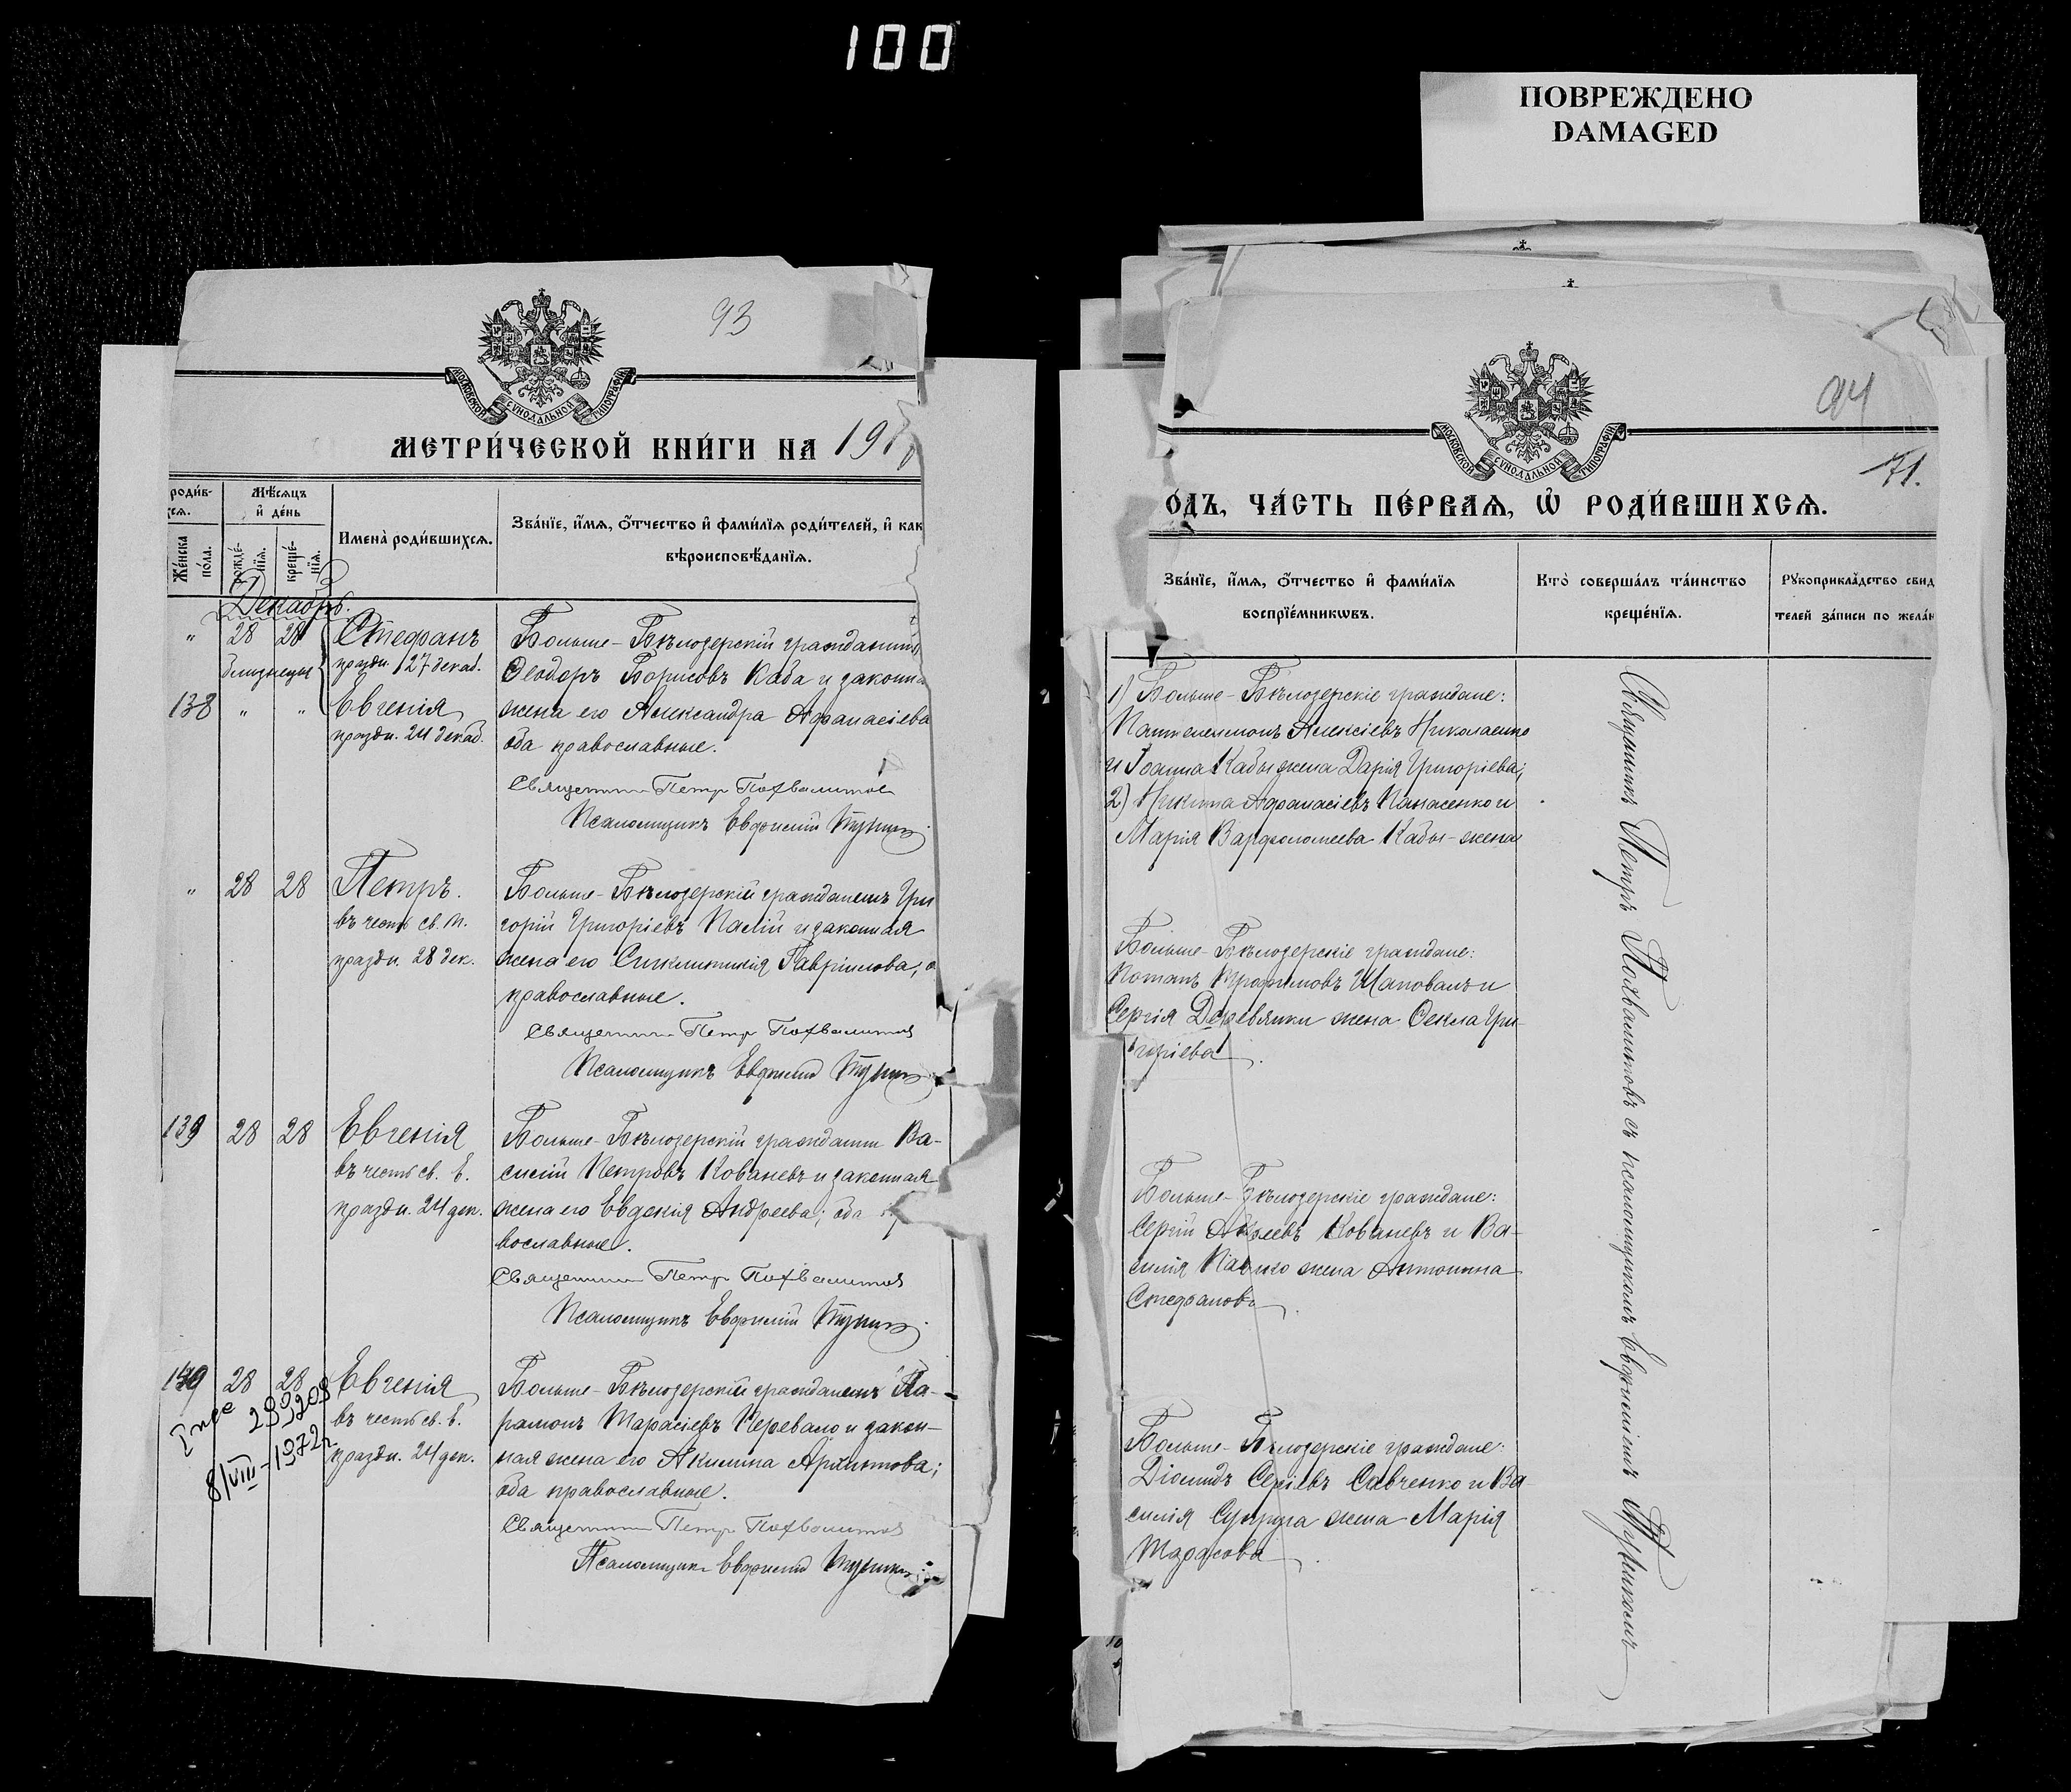 100
ПОВРЕЖДЕНО
DAMAGED
93
МОСКОВСКОЙ СѴНОДАЛЬНОЙ ТИПОГРАФІИ
МЕТРИ́ЧЕСКОЙ КНИ́ГИ НА 191
роди́в-
хся.
Же́нска по́ла.
Мѣ́сяцъ и҆ де́нь
рожде́-нїя.
креще́-нїя.
Имена̀ роди́вшихся.
Зва́нїе, и҆́мя, ѻ҆́тчество и҆ фами́лїя роди́телей, и҆ как
вѣроисповѣ́данїя.
Декабрь.
" 28 28 Стефанъ
праздн. 27 декаб.
близнецы
138 " " Евгенія
праздн. 24 декаб.
Больше-Бѣлозерскій гражданинъ
Ѳеодоръ Борисовъ Каба и законна
жена его Александра Аѳанасіева
оба православные.
Священник Петр Похвалитов
Псаломщикъ Евфимій
" 28 28 Петръ.
въ честь св. м.
праздн. 28 дек.
Больше-Бѣлозерскій гражданинъ Гри
горій Григоріевъ Палій и законная
жена его Синклитикія Гавріилова; о
православные.
Священник Петр Похвалитов
Псаломщикъ Евфимій
139 28 28 Евгенія
въ честь св. Е.
праздн. 24 дек.
Больше-Бѣлозерскій гражданин Ва-
силій Петровъ Ковалевъ и законная
жена его Евдокія Андреева; оба
вославные.
Священник Петр Похвалитов
Псаломщикъ Евфимій
140 28 28 Евгенія
въ честь св. Е.
праздн. 24 дек.
8/VIII-1972 г.
Больше-Бѣлозерскій гражданинъ Па-
рамонъ Тарасіевъ Перевало и закон-
ная жена его Акилина Архипова;
оба православные.
Священник Петр Похвалитов
Псаломщикъ Евфимій
94
71.
МОСКОВСКОЙ СѴНОДАЛЬНОЙ ТИПОГРАФІИ
О́ДЪ, ЧА́СТЬ ПЕ́РВАЯ, Ѽ РОДИ́ВШИХСЯ.
Зва́нїе, и҆́мя, ѻ҆́тчество и҆ фами́лїя
воспрїе́мниковъ.
Кто̀ соверша́лъ та́инство
креще́нїя.
Рꙋкоприкла́дство свид
телей за́писи по жела́н
1) Больше-Бѣлозерскіе граждане:
Пантелеимонъ Алексіевъ Николаенко
и Іоанна Кабы жена Дарія Григоріева;
2) Никита Аѳанасіевъ Панасенко и
Марія Варѳоломеева Кабы - жена
Больше-Бѣлозерскіе граждане:
Потапъ Трофимовъ Шаповалъ и
Сергія Деревянки жена Ѳекла Гри-
горіева.
Больше-Бѣлозерскіе граждане:
Сергій Ковалевъ и Ва-
силія жена Антонина
Стефанова.
Больше-Бѣлозерскіе граждане:
Діомидъ Сергіевъ Савченко и Ва-
силія жена Марія
Тарасова.
Священникъ Петръ Похвалитовъ съ псаломщикомъ Евфиміемъ